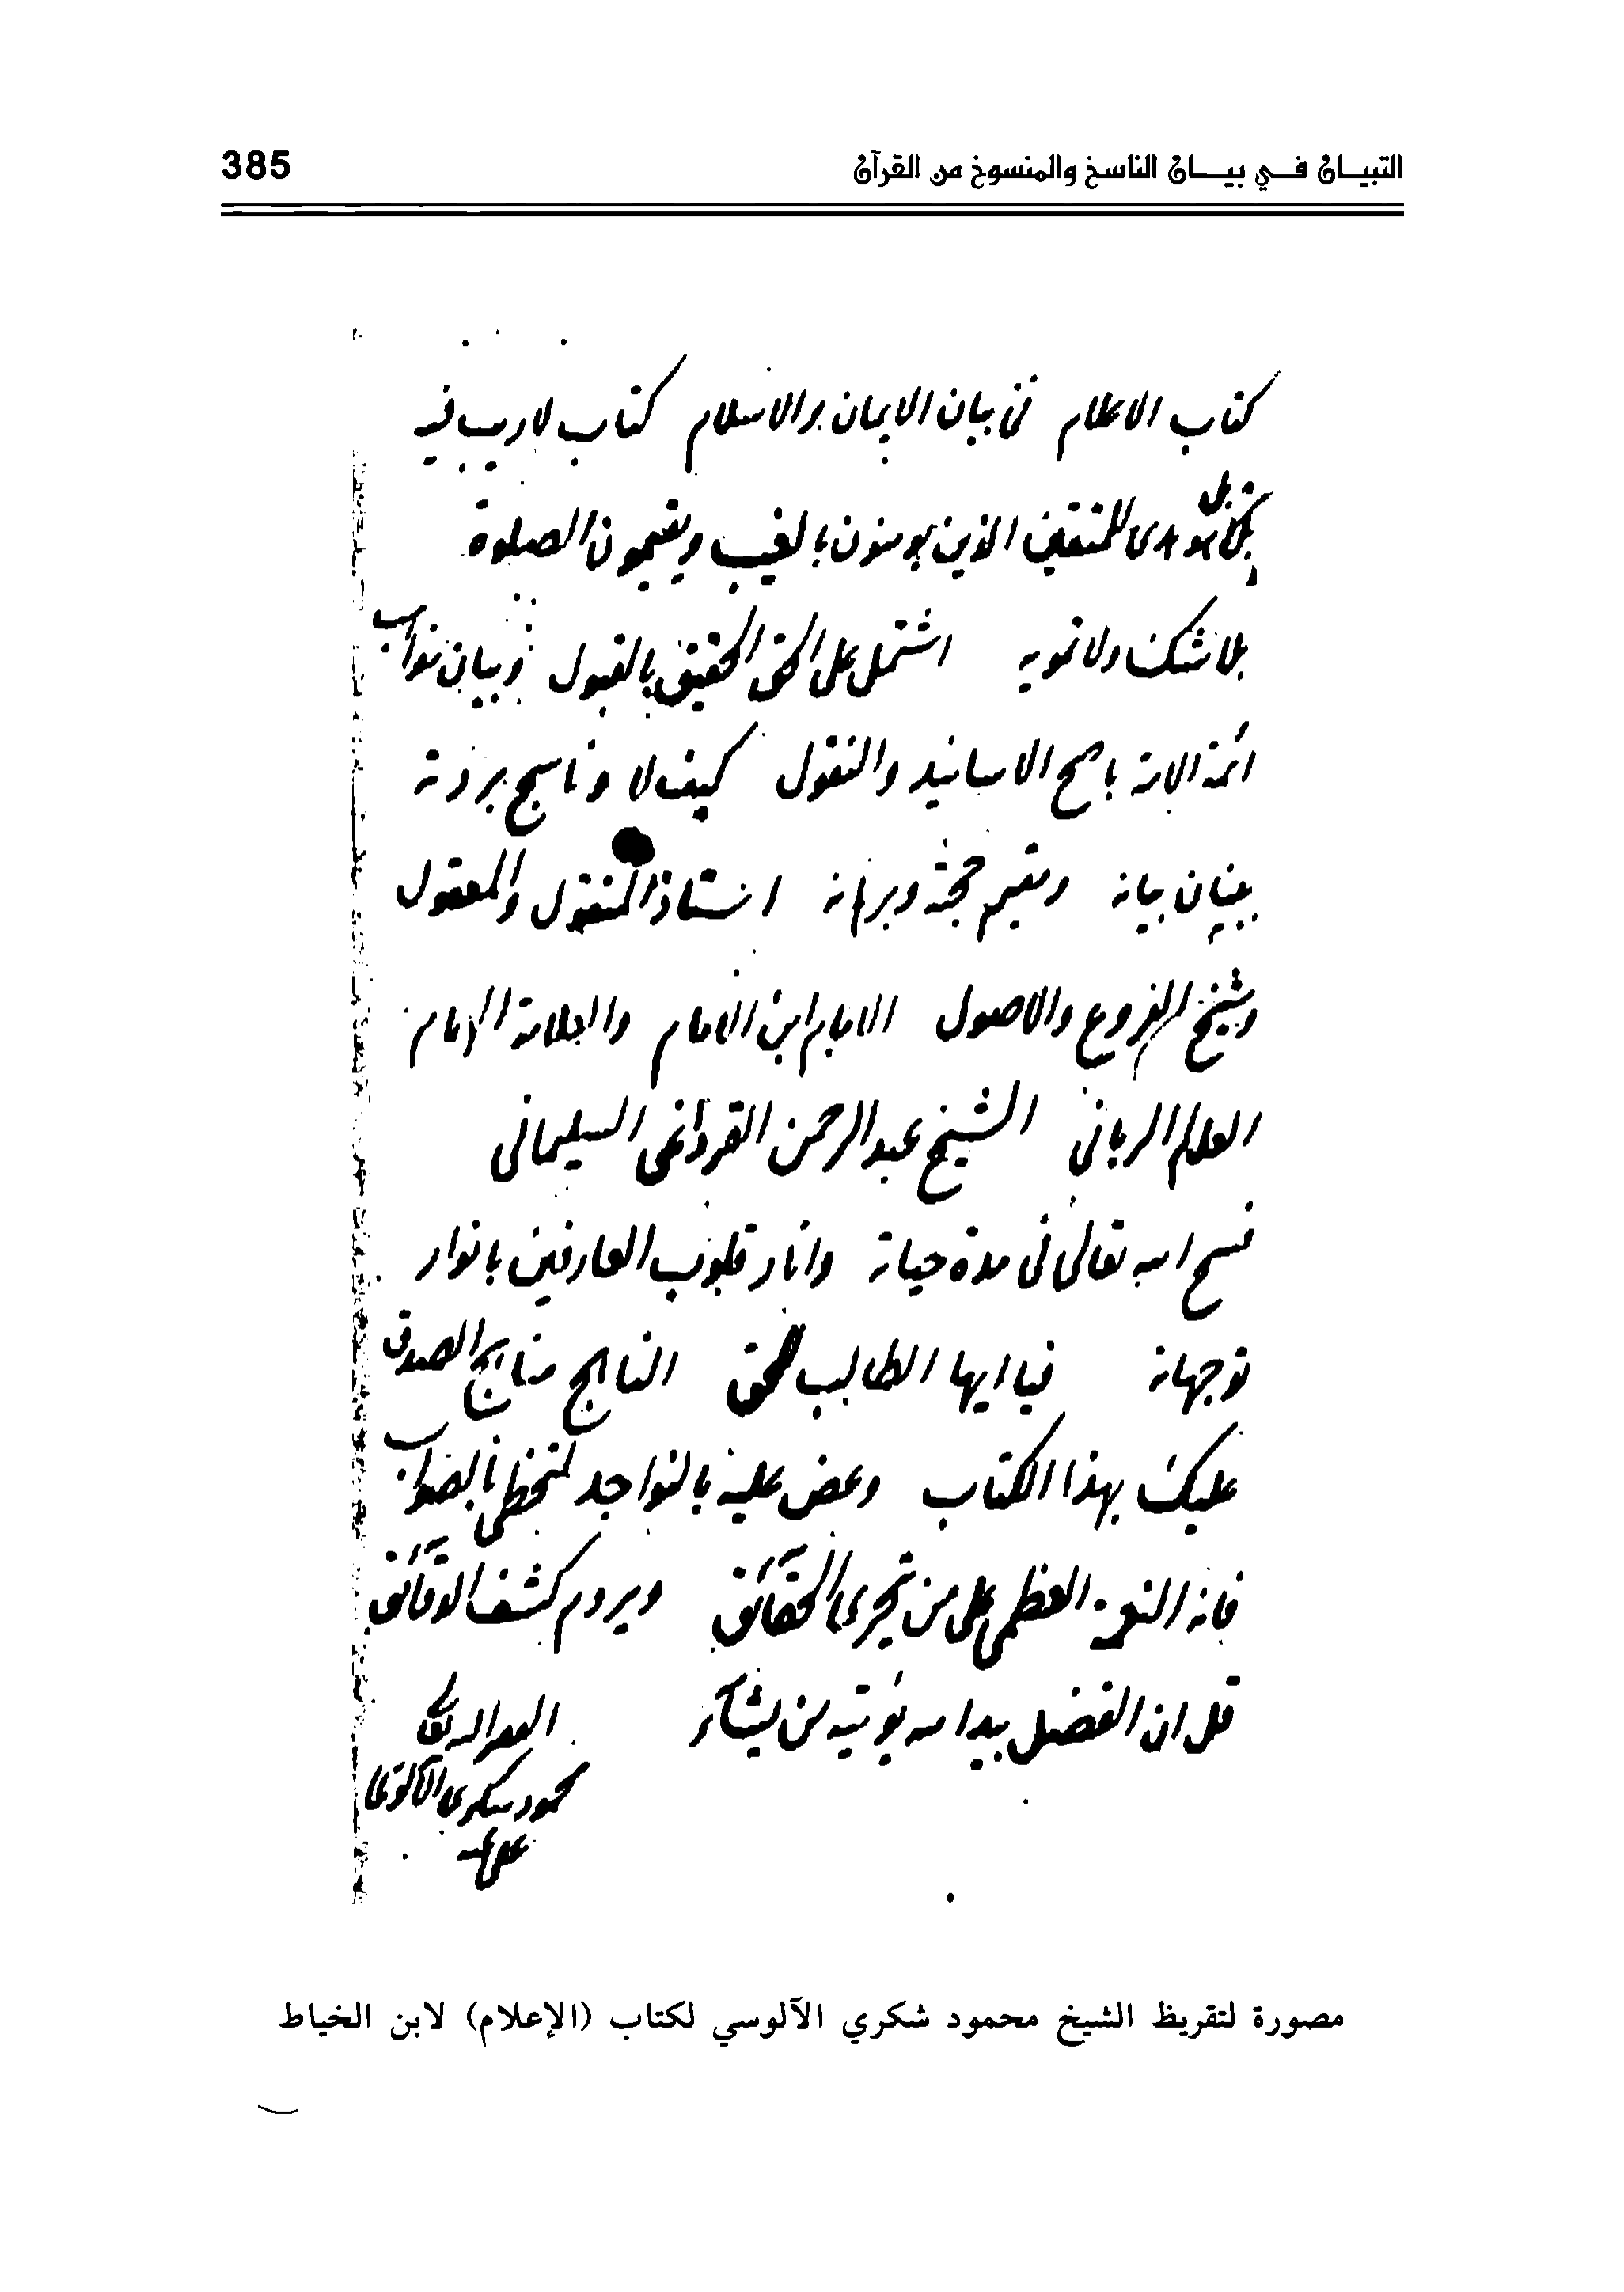 التبيان في بيان الناسخ والمنسوخ من القرآن 385
كتاب الاعلام في بيان الايمان والاسلام كتاب لا ريب فيه
بل هو هدى للمتقين الذين يومنون بالغيب ويقيمون الصلوة
بلا شك ولا تمويه اشتمل على الحق الحقيق بالقبول وبيان
ائمة الامة باصح الاسانيد والنقول كيف لا وناسج بردته
ببنيان بيانه ومقيم حجته وبرهانه استاذ المنقول والمعقول
وشيخ الفروع والاصول الامام ابن الامام والعلامة الامام
العالم الرباني الشيخ عبد الرحمن القرداغي السليماني
فسح الله تعالى في مدة حياته وانار قلوب العارفين بانوار
توجهاته فيا ايها الطالب للحق الناهج مناهج الصدق
عليك بهذا الكتاب وعض عليه بالنواجد لتحظى بالصواب
فانه النعمة العظمى على من تحرى الحقائق ويروم كشف الدقائق
قل ان الفضل بيد الله يؤتيه من يشآء
محمود شكري الآلوسي
مصورة لتقريظ الشيخ محمود شكري الآلوسي لكتاب (الإعلام) لابن الخياط